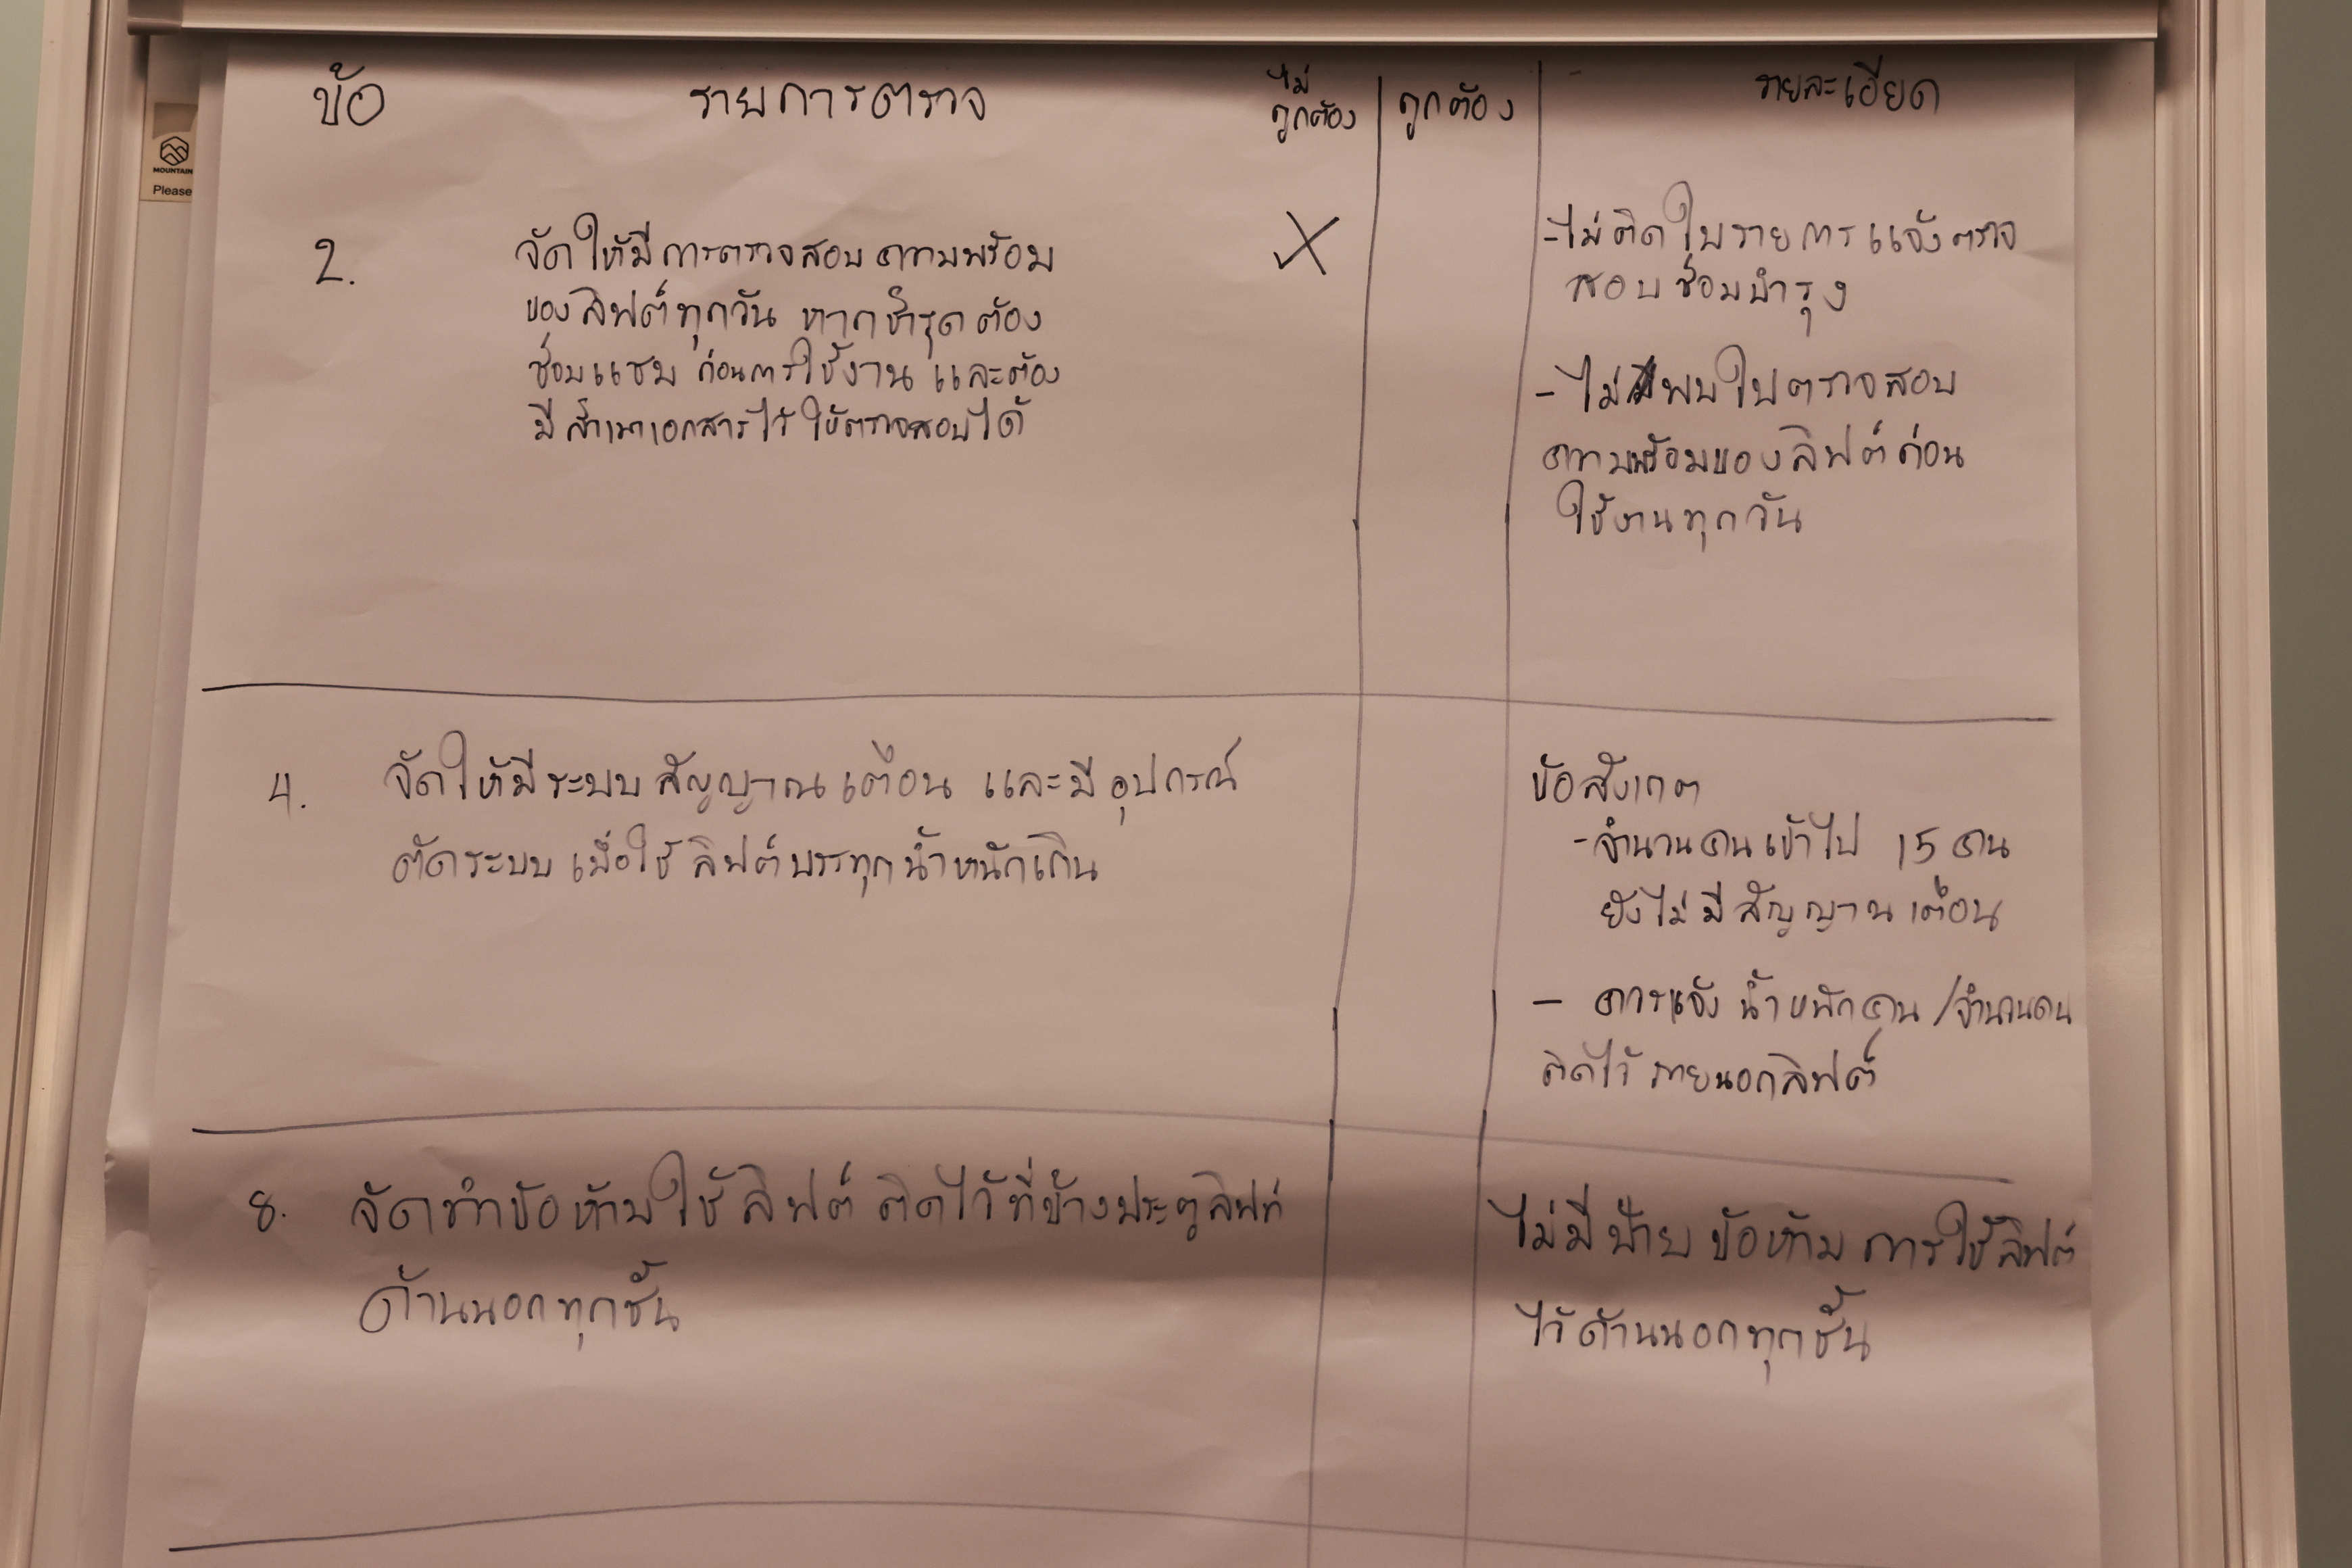 ข้อ รายการตรวจ ไม่ถูกต้อง ถูกต้อง รายละเอียด
MOUNTAIN
Please
2. จัดให้มีการตรวจสอบความพร้อม
ของลิฟต์ทุกวัน หากชำรุดต้อง
ซ่อมแซม ก่อนการใช้งาน และต้อง
มีสำเนาเอกสารไว้ให้ตรวจสอบได้
- ไม่ติดใบรายการแจ้งตรวจ
สอบซ่อมบำรุง
- ไม่พบใบตรวจสอบ
ความพร้อมของลิฟต์ก่อน
ใช้งานทุกวัน
4. จัดให้มีระบบสัญญาณเตือน และมีอุปกรณ์
ตัดระบบเมื่อใช้ลิฟต์บรรทุกน้ำหนักเกิน
ข้อสังเกต
- จำนวนคนเข้าไป 15 คน
ยังไม่มีสัญญาณเตือน
- ควรแจ้งน้ำหนักคน/จำนวนคน
ติดไว้ภายนอกลิฟต์
8. จัดทำข้อห้ามใช้ลิฟต์ ติดไว้ที่ข้างประตูลิฟท์
ด้านนอกทุกชั้น
ไม่มีป้ายข้อห้ามการใช้ลิฟต์
ไว้ด้านนอกทุกชั้น